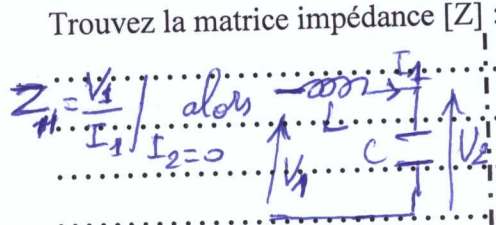 Trouvez la matrice impédance [Z] :
Z₁₁ = V₁/I₁ | I₂=0 alors
I₁
L
C
V₁
V₂